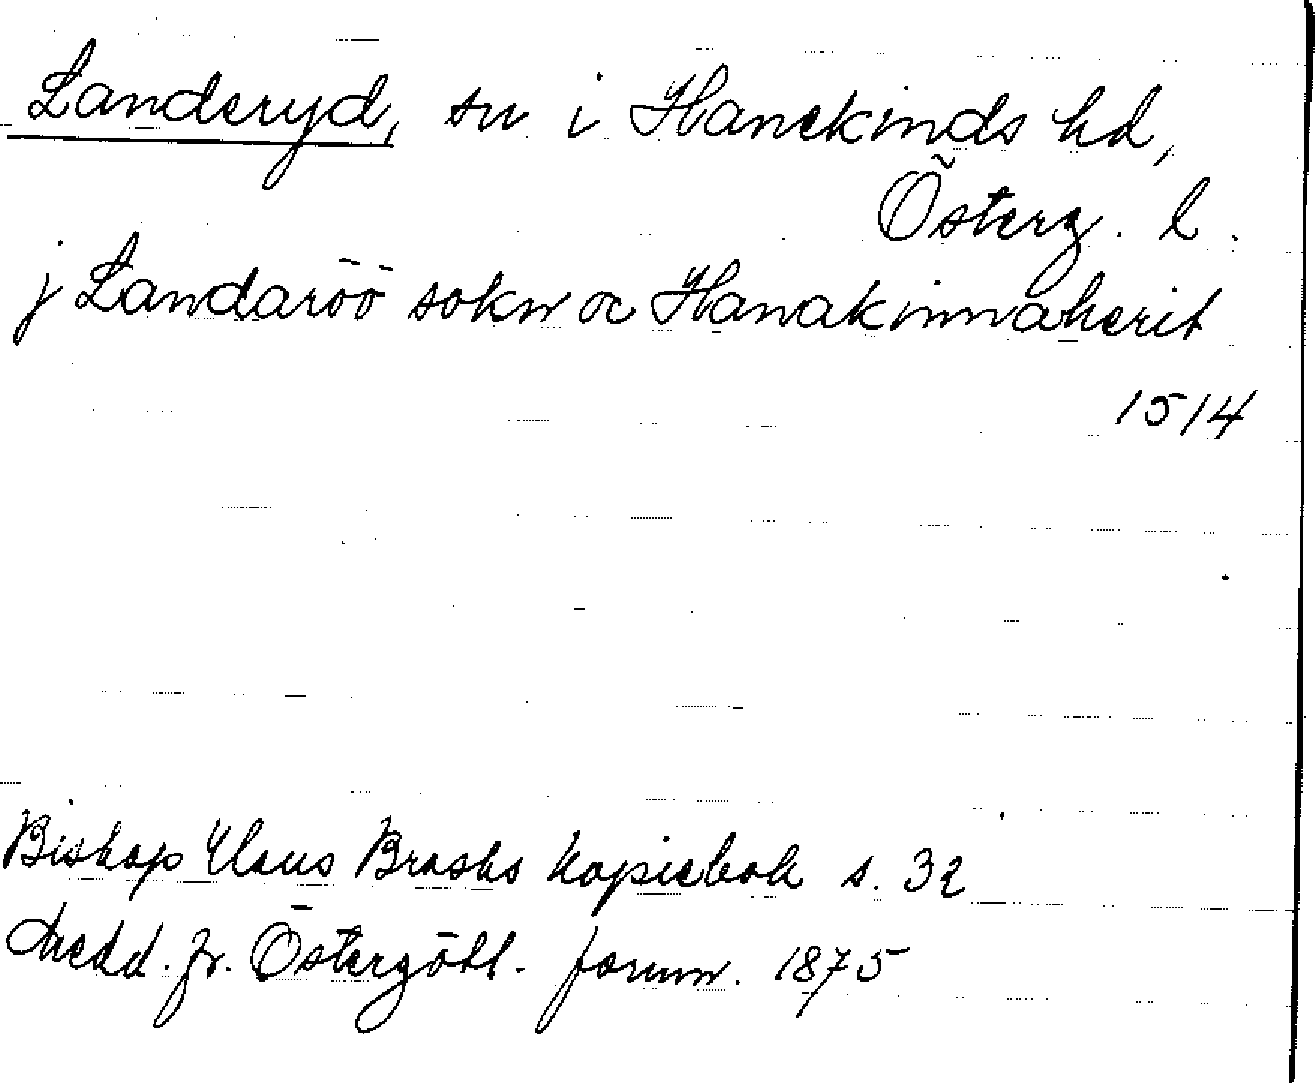 Landeryd, sn i Hanekinds hd,
Österg. l.
j Landaröö sokn oc Hanakinnaherit
1514
Biskop Claus Brasks kopiebok s. 32
Medd. fr. Östergötl. fornm. 1875